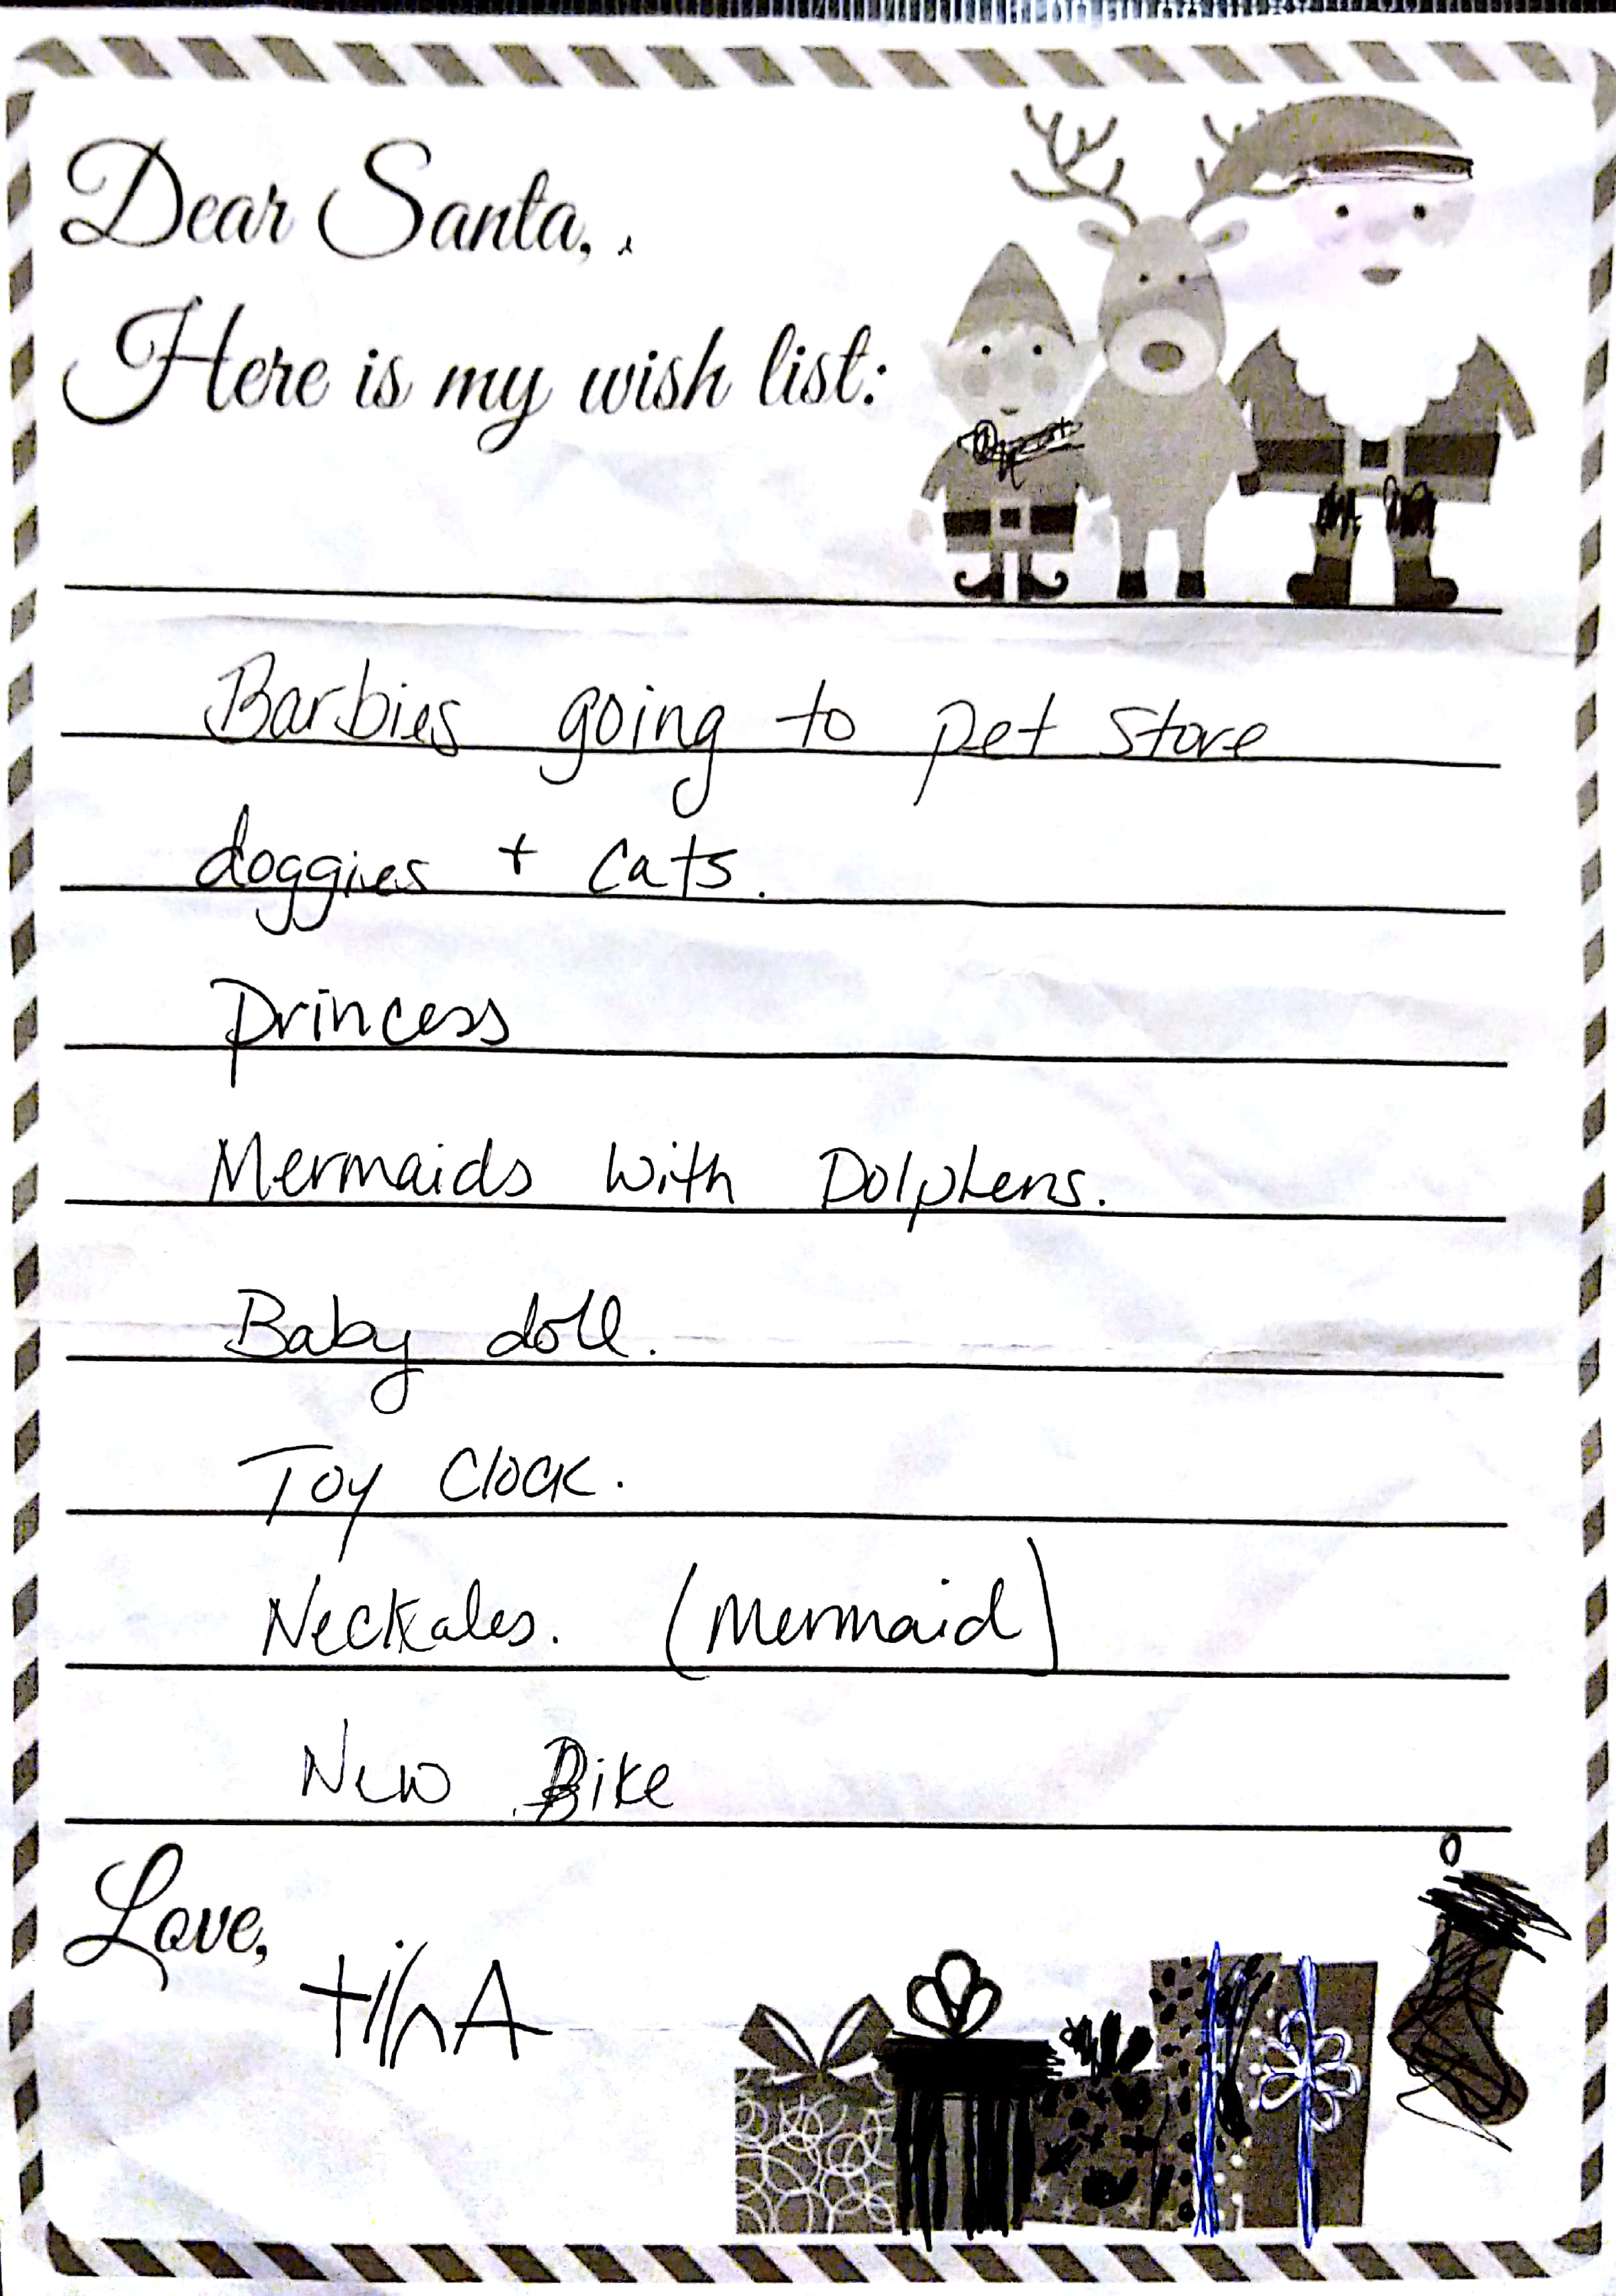 Dear Santa,
Here is my wish list:
Barbies going to pet store
doggies + cats.
Princess
Mermaids with Dolphens.
Baby doll.
Toy Clock.
Neckales. (Mermaid)
New Bike
Love,
tinA